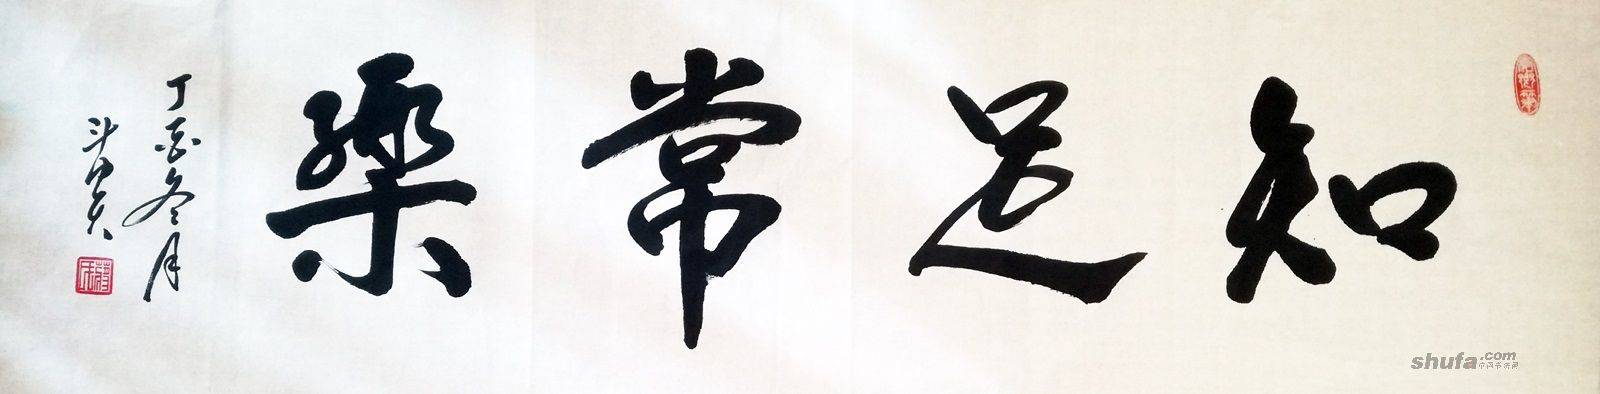 知足常樂
丁酉冬月
shufa.com
中国书法网